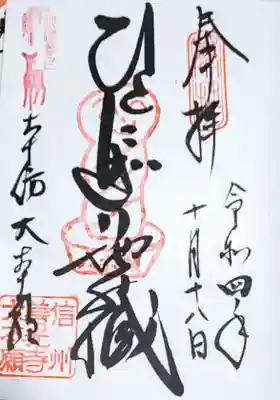 奉拝
令和四年
十月十八日
ひとにぎり地蔵
善光寺 大本願
信州
善光寺
大本願